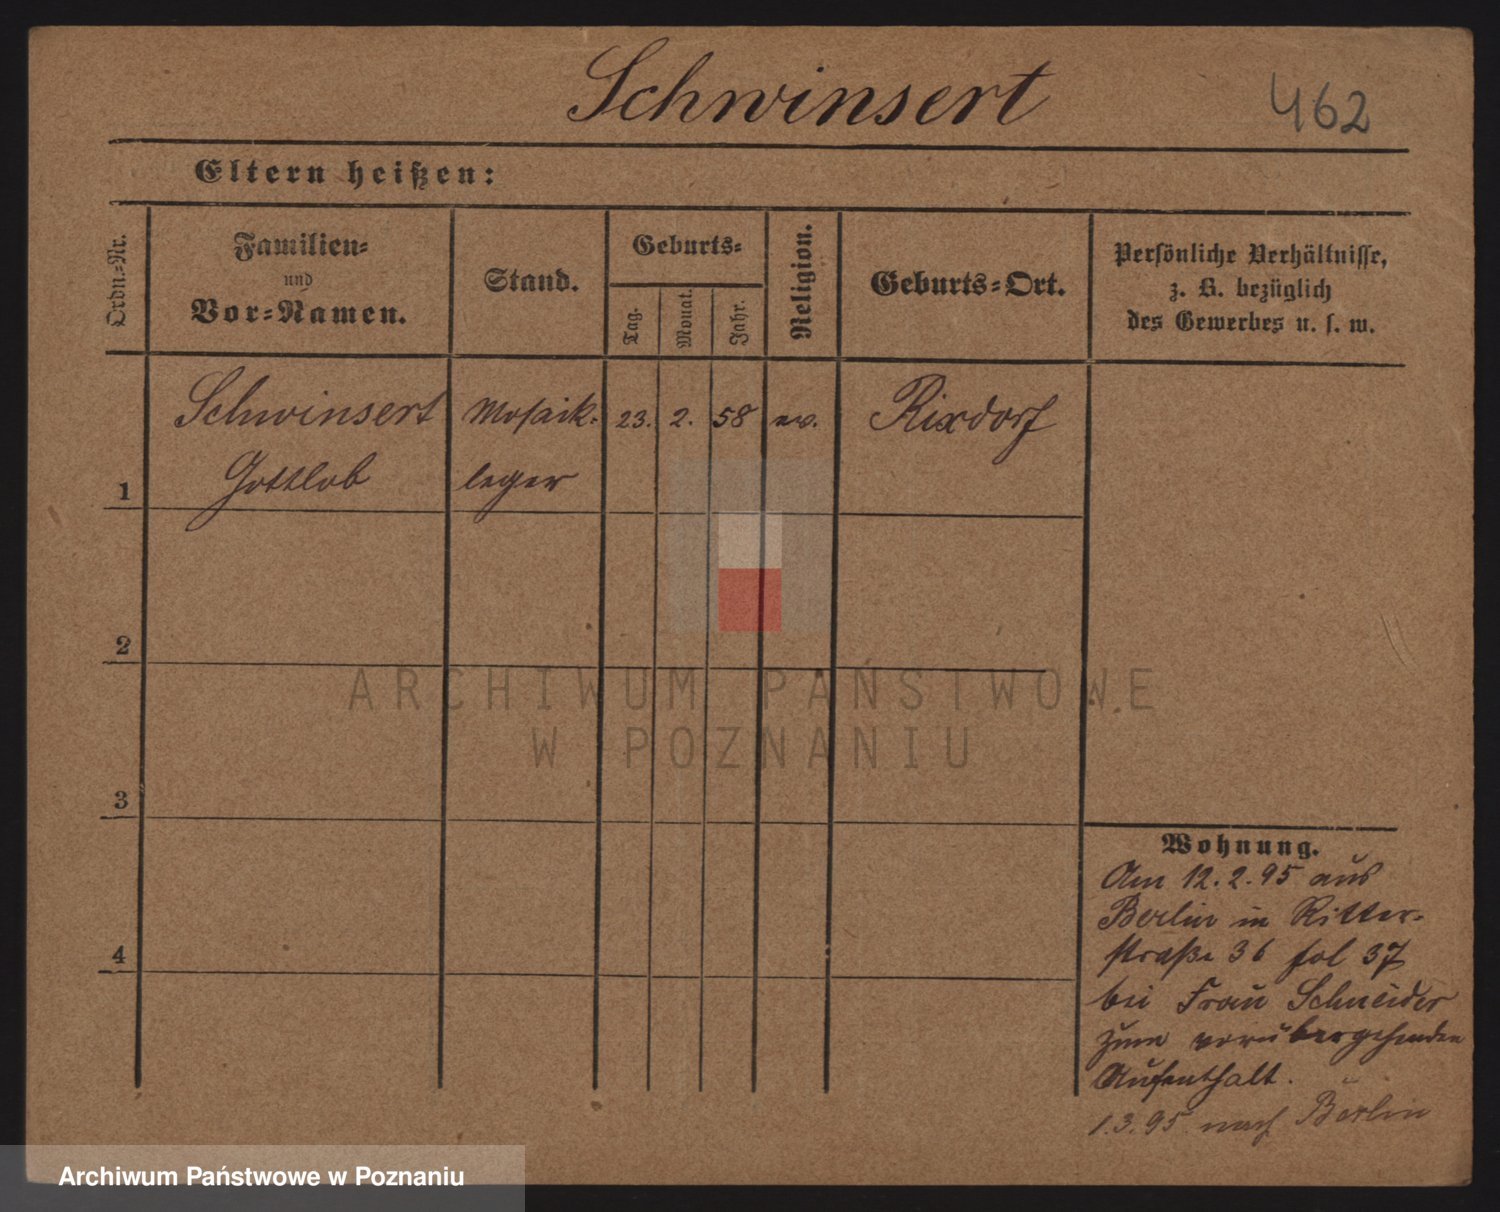 Schwinsert
462
Eltern heißen:
Ordn.=Nr.
Familien=
und
Vor=Namen.
Stand.
Geburts=
Tag.
Monat.
Jahr.
Religion.
Geburts=Ort.
Persönliche Verhältnisse,
z. B. bezüglich
des Gewerbes u. s. w.
1
Schwinsert
Gottlob
Mosaik=
leger
23.
2.
58
ev.
Rixdorf
2
3
4
ARCHIWUM PAŃSTWOWE
W POZNANIU
Wohnung.
Am 12.2.95 aus
Berlin in Ritter=
straße 36 fol 37
bei Frau Schneider
zum vorübergehenden
Aufenthalt.
1.3.95 nach Berlin
Archiwum Państwowe w Poznaniu